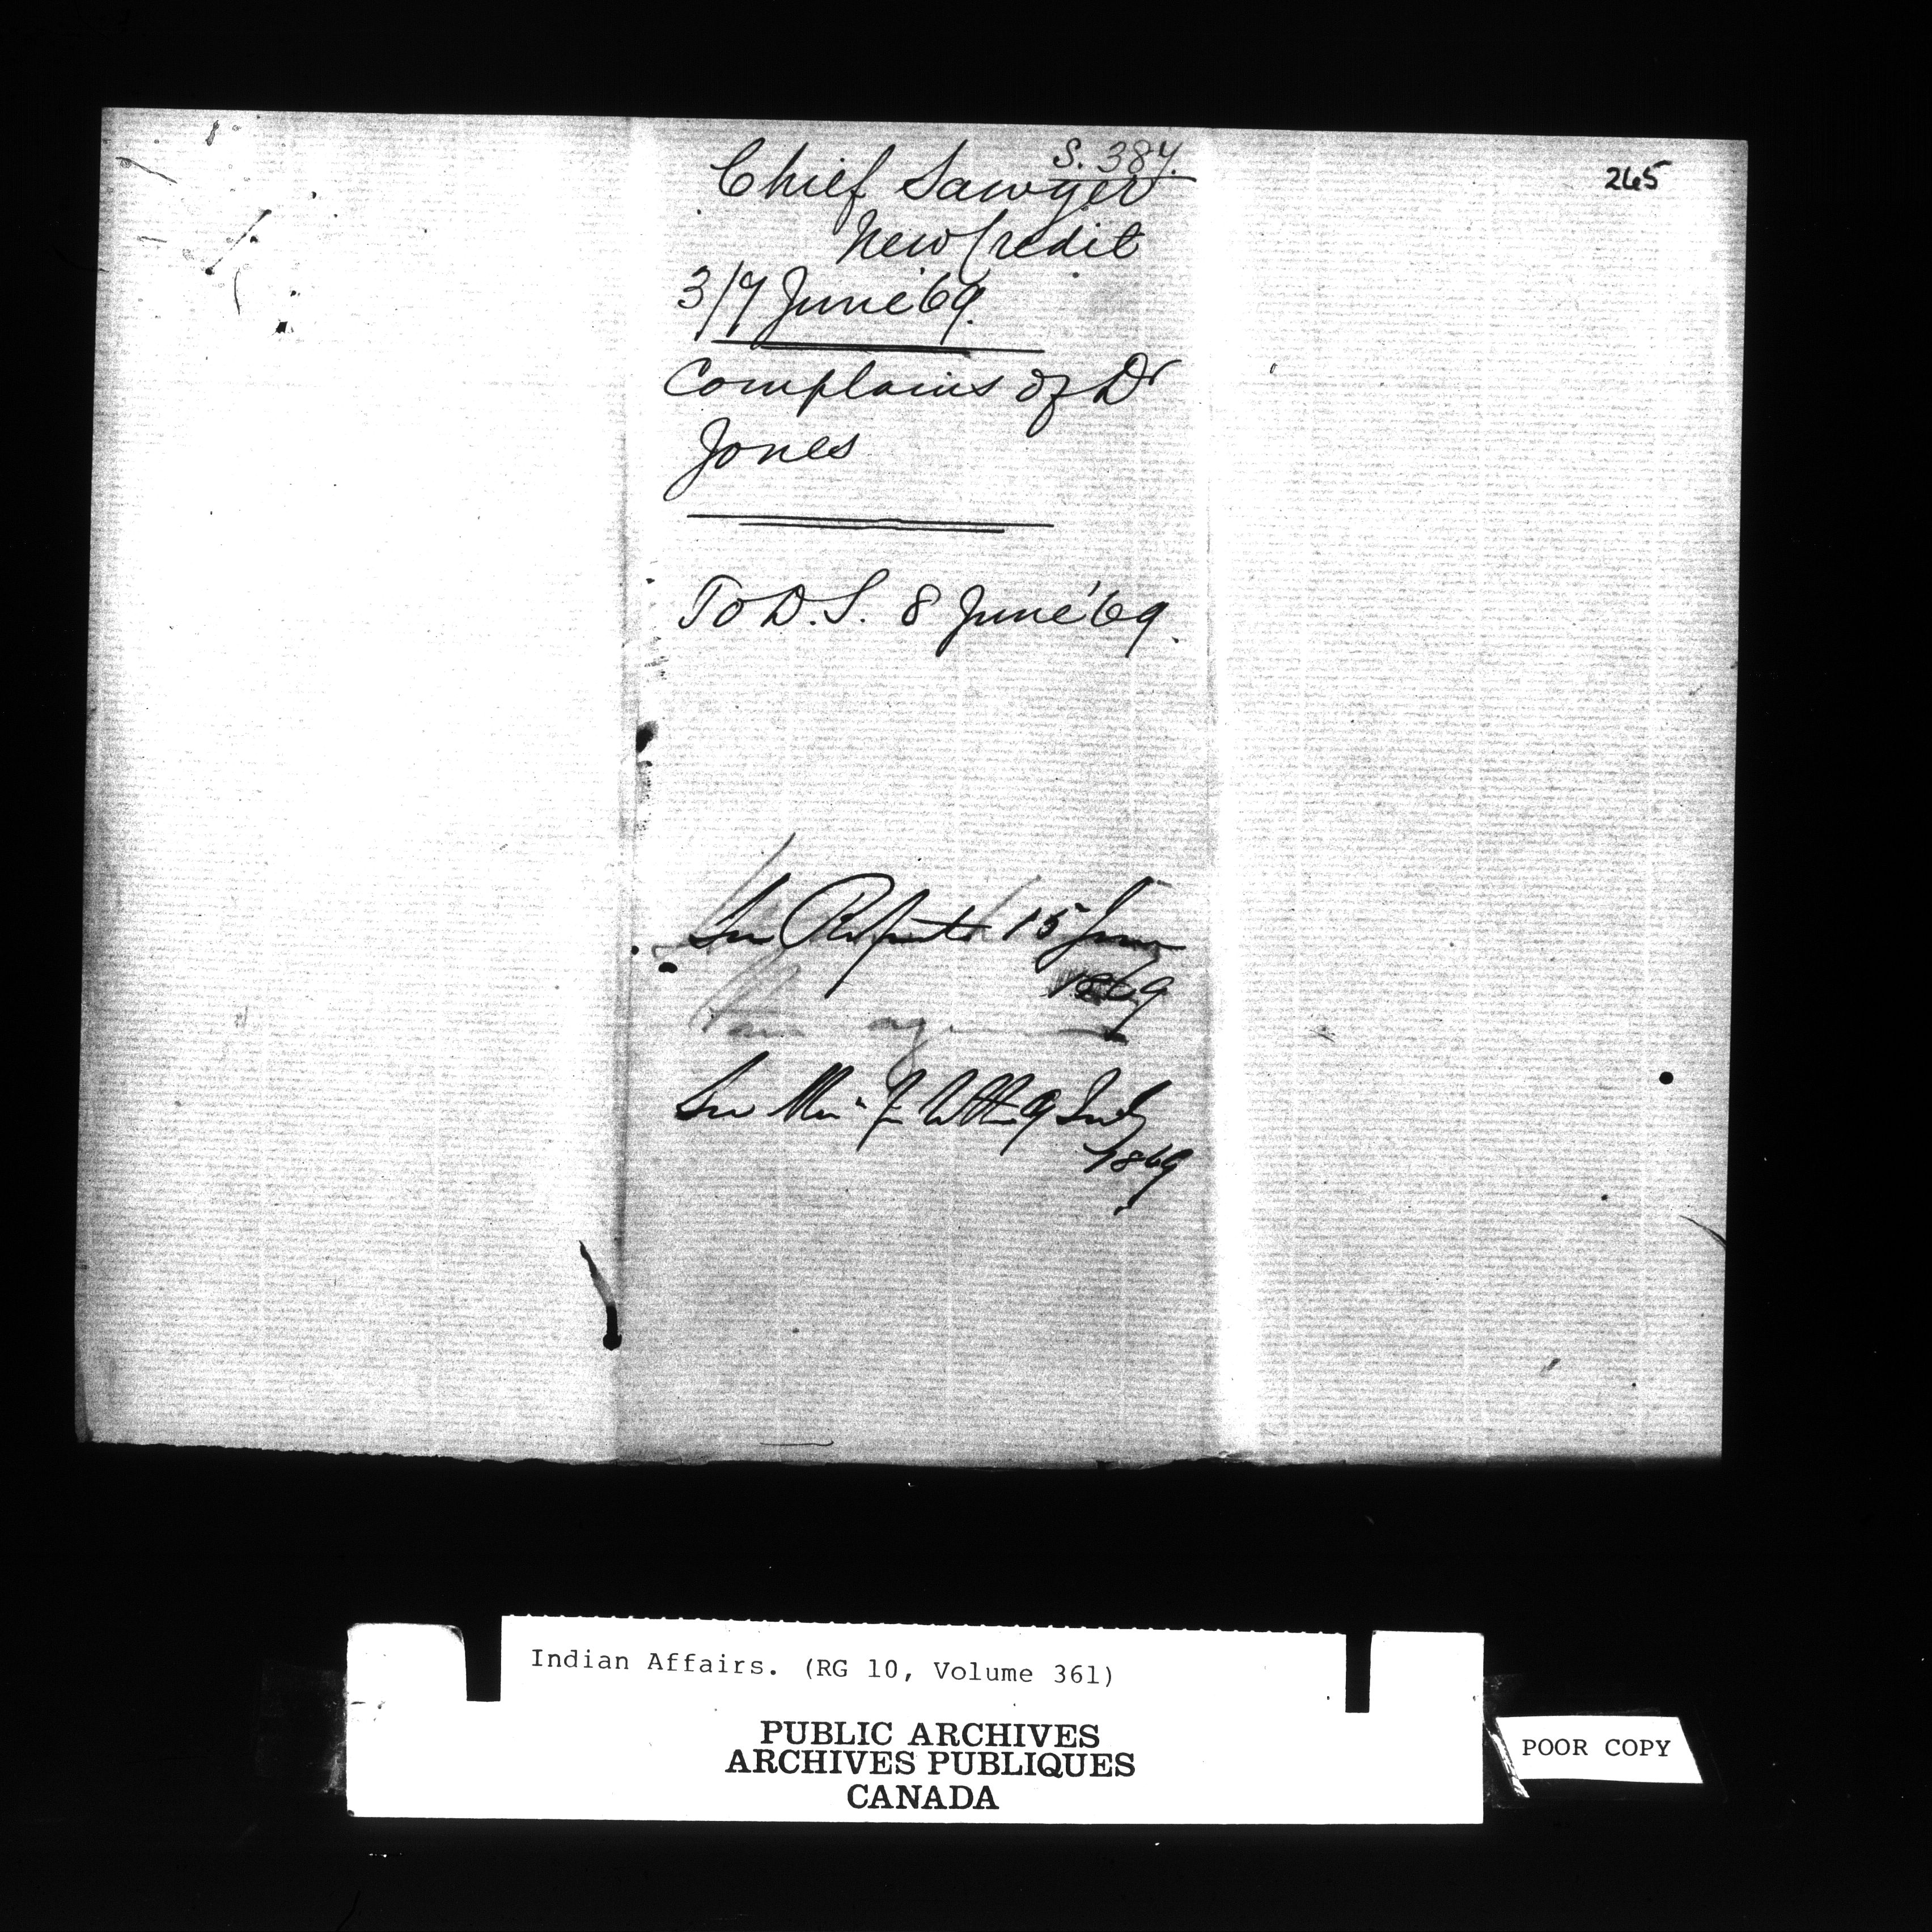 S. 387.
265
Chief Sawyer
New Credit
3/7 June '69.
Complains of Dr
Jones
To D. S. 8 June '69.
See Report 15 June
1869
See 9 July
1869
Indian Affairs. (RG 10, Volume 361)
PUBLIC ARCHIVES
ARCHIVES PUBLIQUES
CANADA
POOR COPY